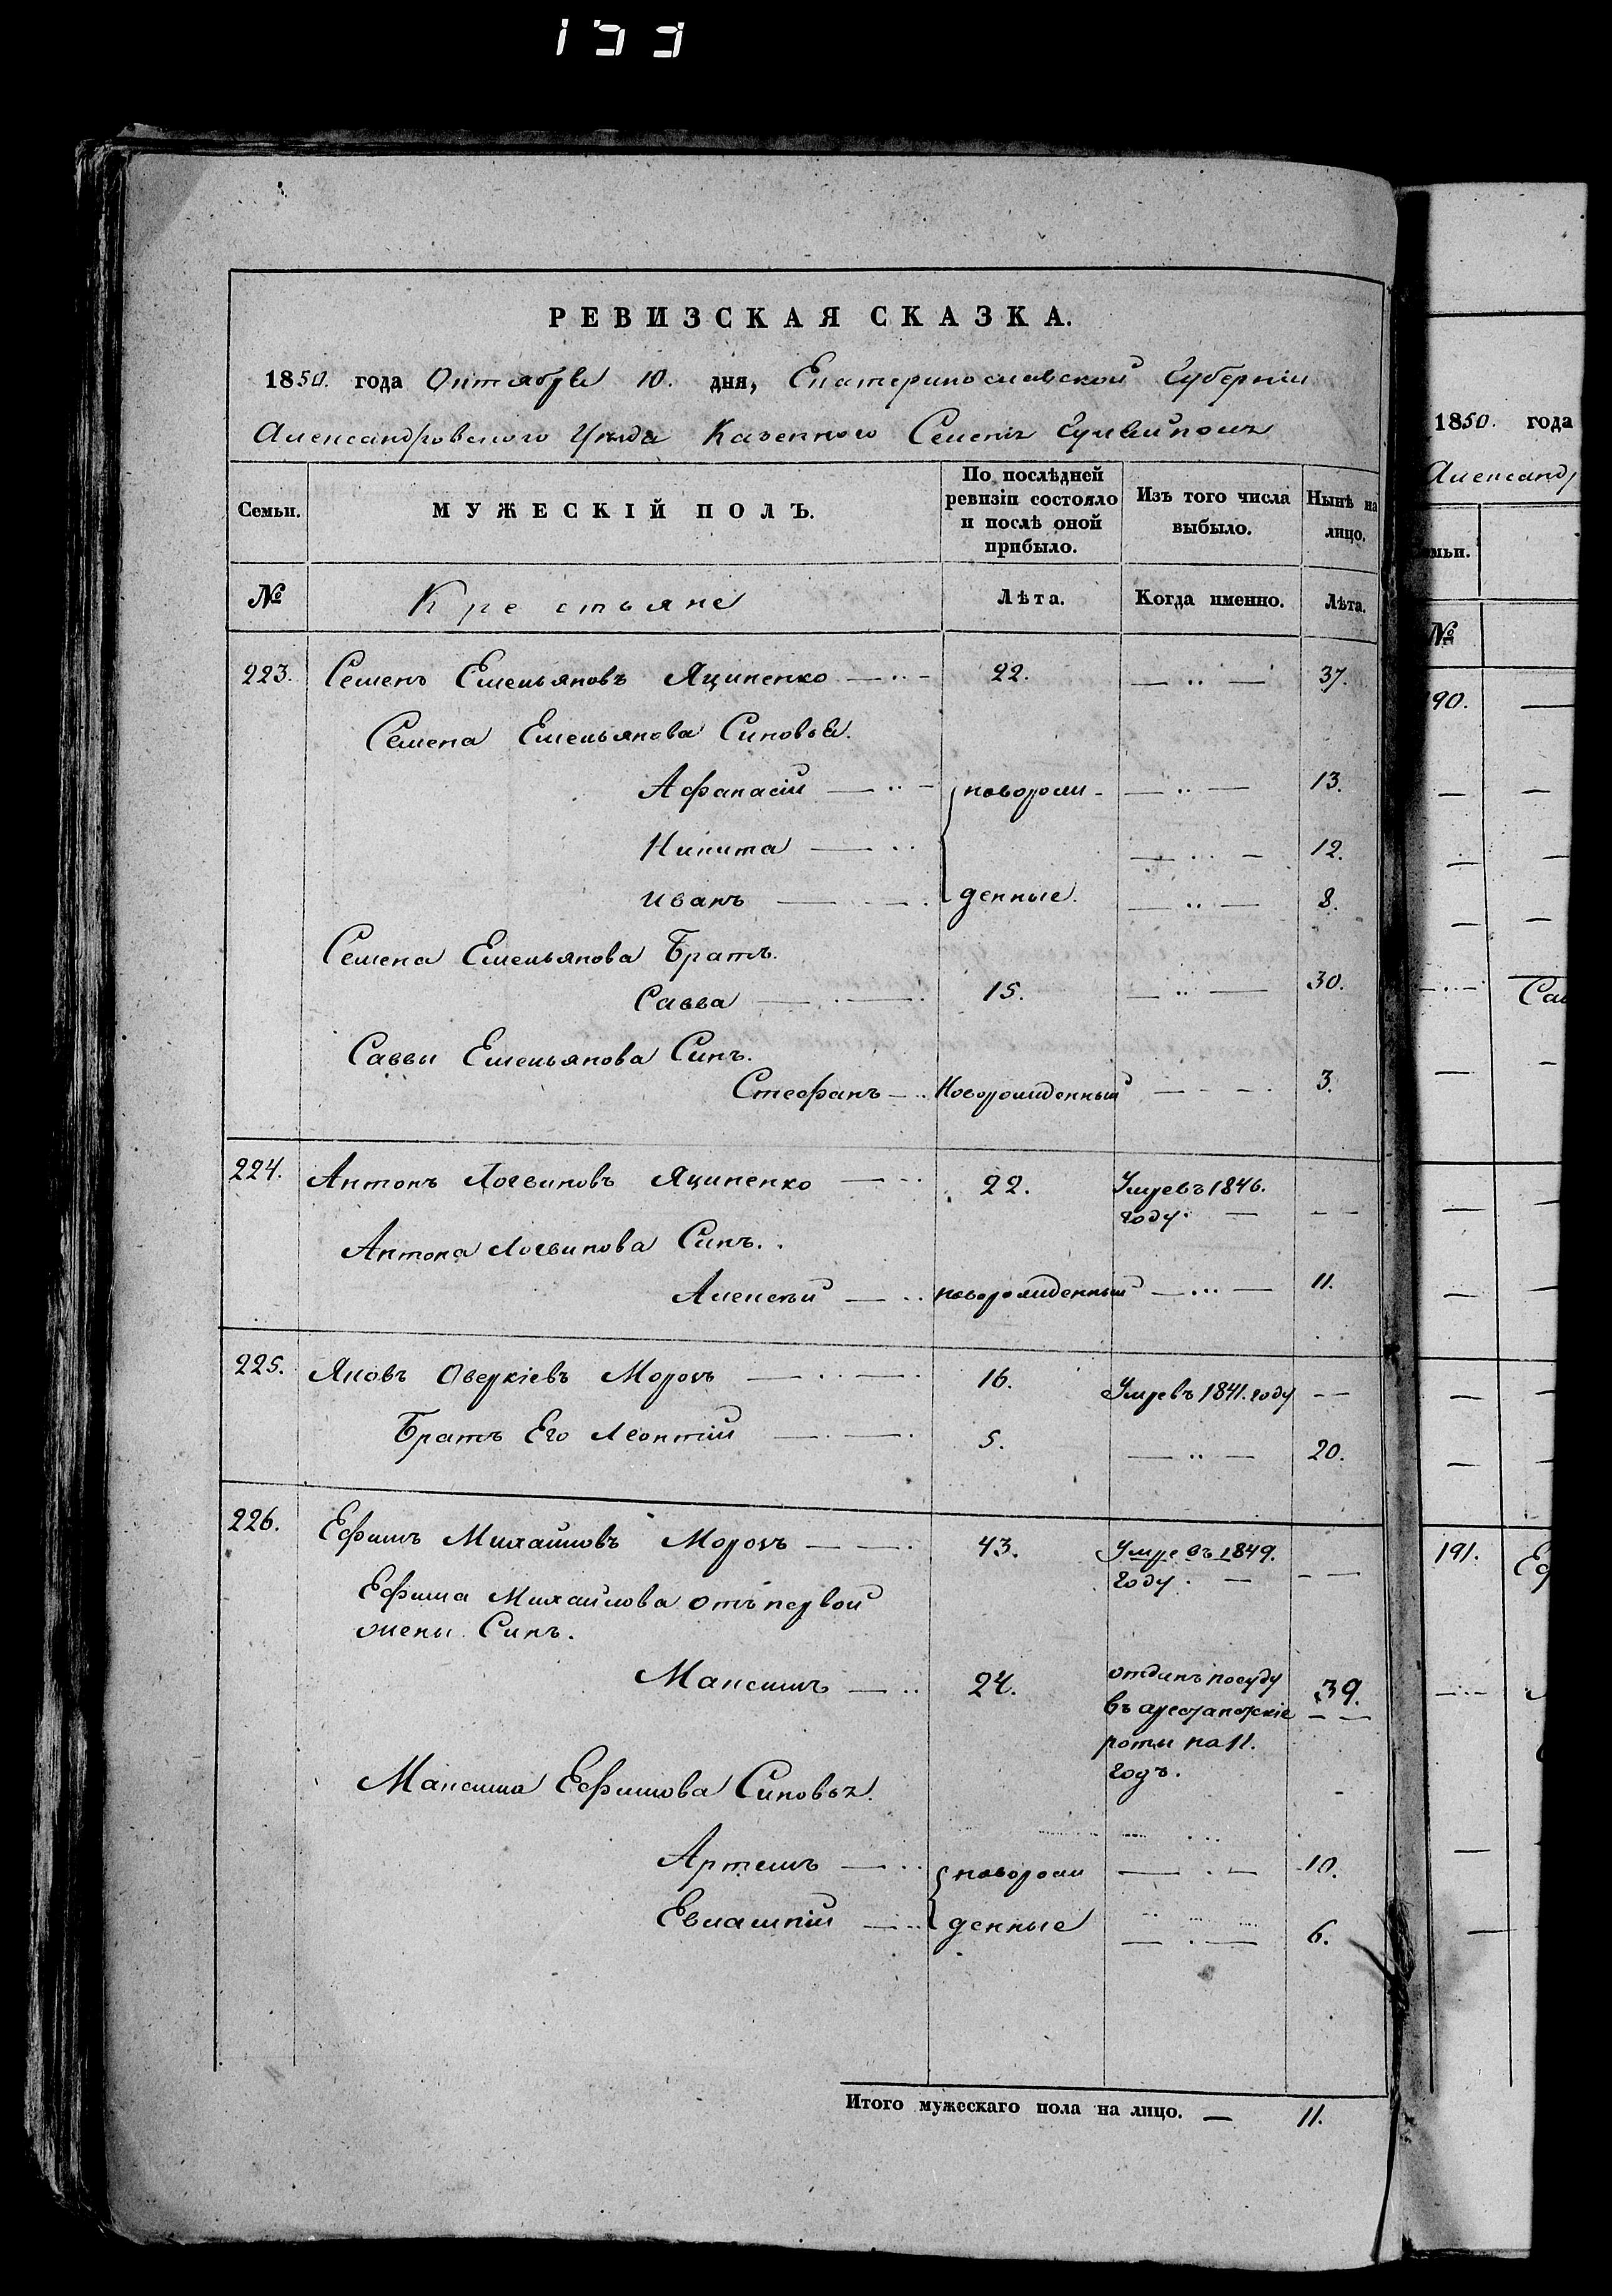 133
РЕВИЗСКАЯ СКАЗКА.
1850. года Октября 10. дня, Екатеринославской Губерніи
Александровского Уезда Казенного Селенія Гуляйполя
Семьи.
МУЖЕСКІЙ ПОЛЪ.
По послѣдней ревизіи состояло и послѣ оной прибыло.
Изъ того числа выбыло.
Нынѣ на лицо.
№
Крестьяне
Лѣта.
Когда именно.
Лѣта.
223. Семенъ Емельяновъ Яциненко 22. 37.
Семена Емельянова Синовья.
Афанасій новорож- 13.
Никита 12.
Иванъ денные. 8.
Семена Емельянова Братъ.
Савва 15. 30.
Саввы Емельянова Синъ.
Стефанъ Новорожденный 3.
224. Антонъ Логвиновъ Яциненко 22. Умре въ 1846.
году.
Антона Логвинова Синъ.
Алексѣй новорожденный 11.
225. Яковъ Оверкіевъ Морозъ 16. Умре въ 1841. году
Братъ Его Леонтій 5. 20.
226. Ефимъ Михайловъ Морозъ 43. Умре въ 1849.
году.
Ефима Михайлова отъ первой
жены. Синъ.
Максимъ 24. отданъ посуду 39.
въ арестантскіе
роты на 11.
годъ.
Максима Ефимова Синовья.
Артемъ новорож 10.
Евлампій денные 6.
Итого мужескаго пола на лицо. 11.
1850. года
Александр
емьи.
№
90.
Сав
191. Еф